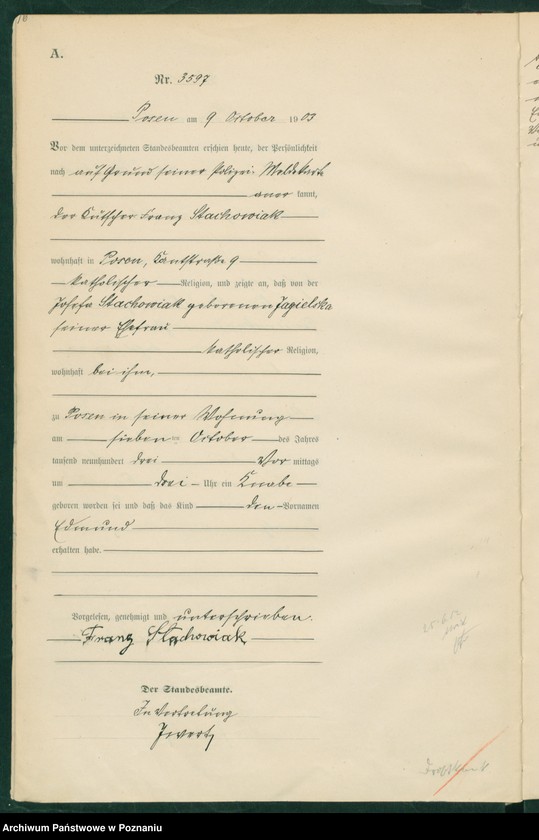 A.
Nr. 3597
Posen am 9 October 1903
Vor dem unterzeichneten Standesbeamten erschien heute, der Persönlichkeit
nach auf Grund seiner Polizei Meldekarte
aner kannt,
der Kutscher Franz Stachowiak
wohnhaft in Posen, Kantstraße 9
katholischer Religion, und zeigte an, daß von der
Josefa Stachowiak geborenen Jagielska
seiner Ehefrau
katholischer Religion,
wohnhaft bei ihm,
zu Posen in seiner Wohnung
am sieben ten October des Jahres
tausend neunhundert drei Vor mittags
um drei Uhr ein Knabe
geboren worden sei und daß das Kind den Vornamen
Edmund
erhalten habe.
Vorgelesen, genehmigt und unterschrieben.
Franz Stachowiak
Der Standesbeamte.
In Vertretung
Archiwum Państwowe w Poznaniu